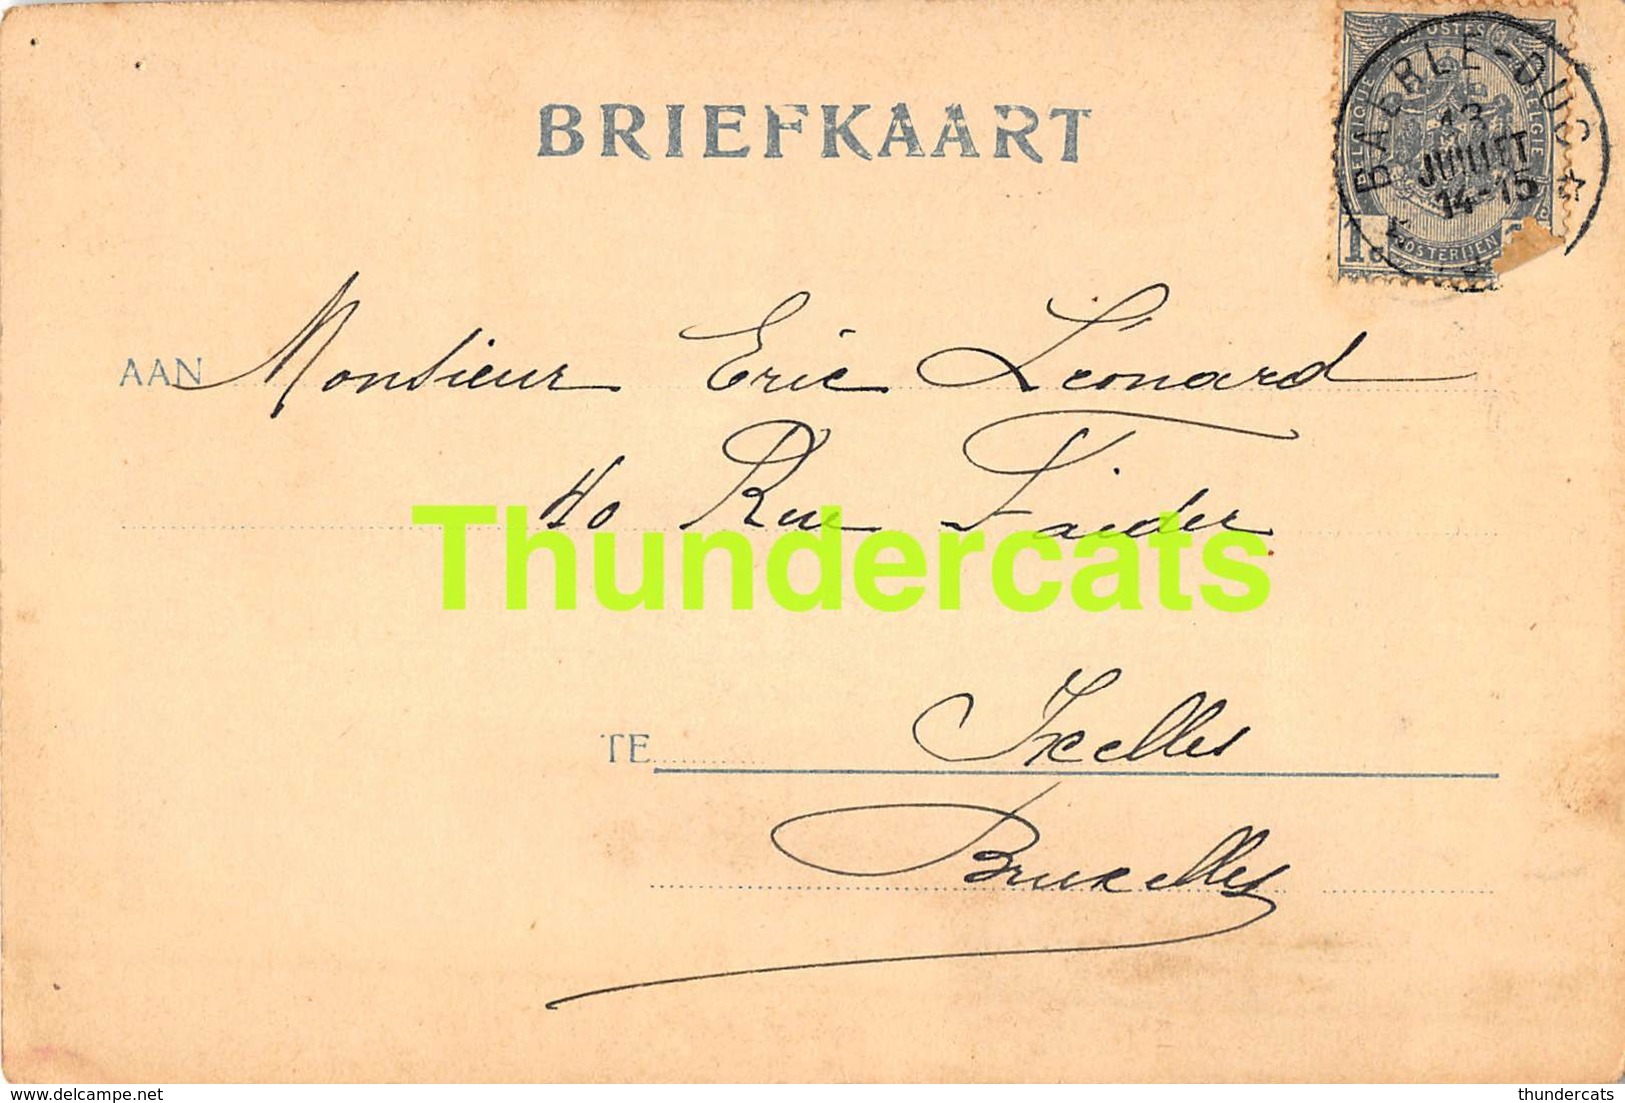 BRIEFKAART
POSTES
BELGIQUE
BELGIE
POSTERIJEN
BAERLE-DUC
13
JUILLET
14-15
AAN Monsieur Eric Léonard
40 Rue Faider
Thundercats
TE Ixelles
Bruxelles
thundercats - delcampe.net